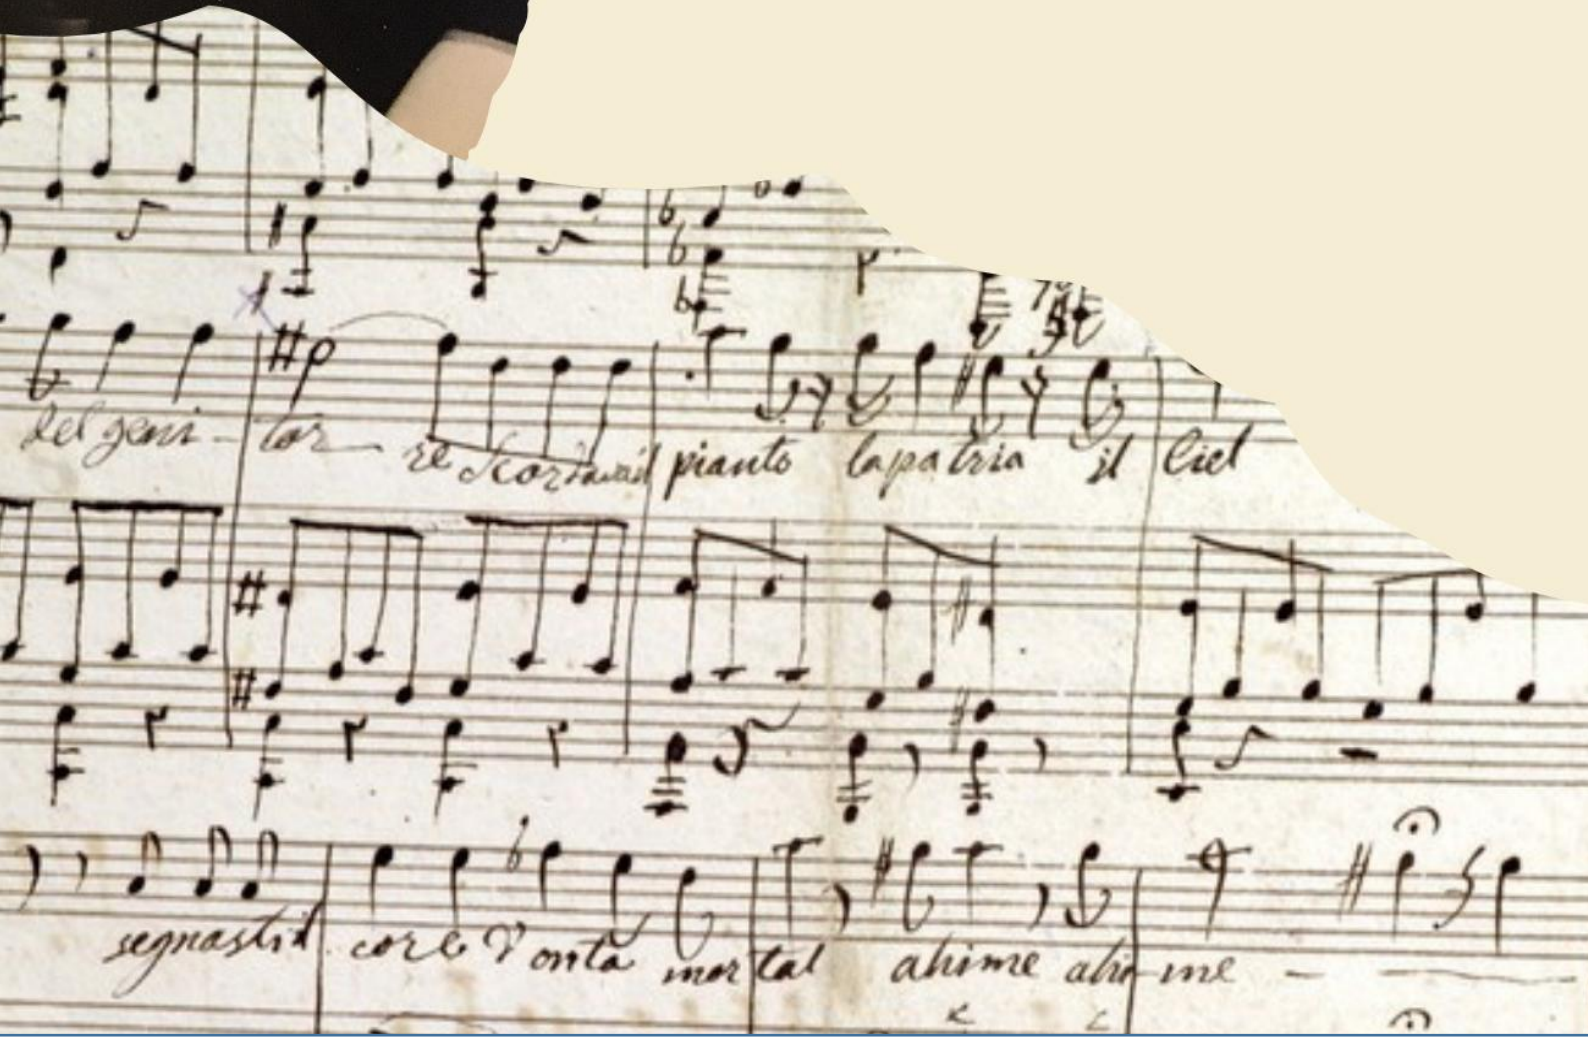 del geni - tor - re scordavail pianto la patria il Ciel
segnasti il core d'onta mor tal ahime ahi - me -